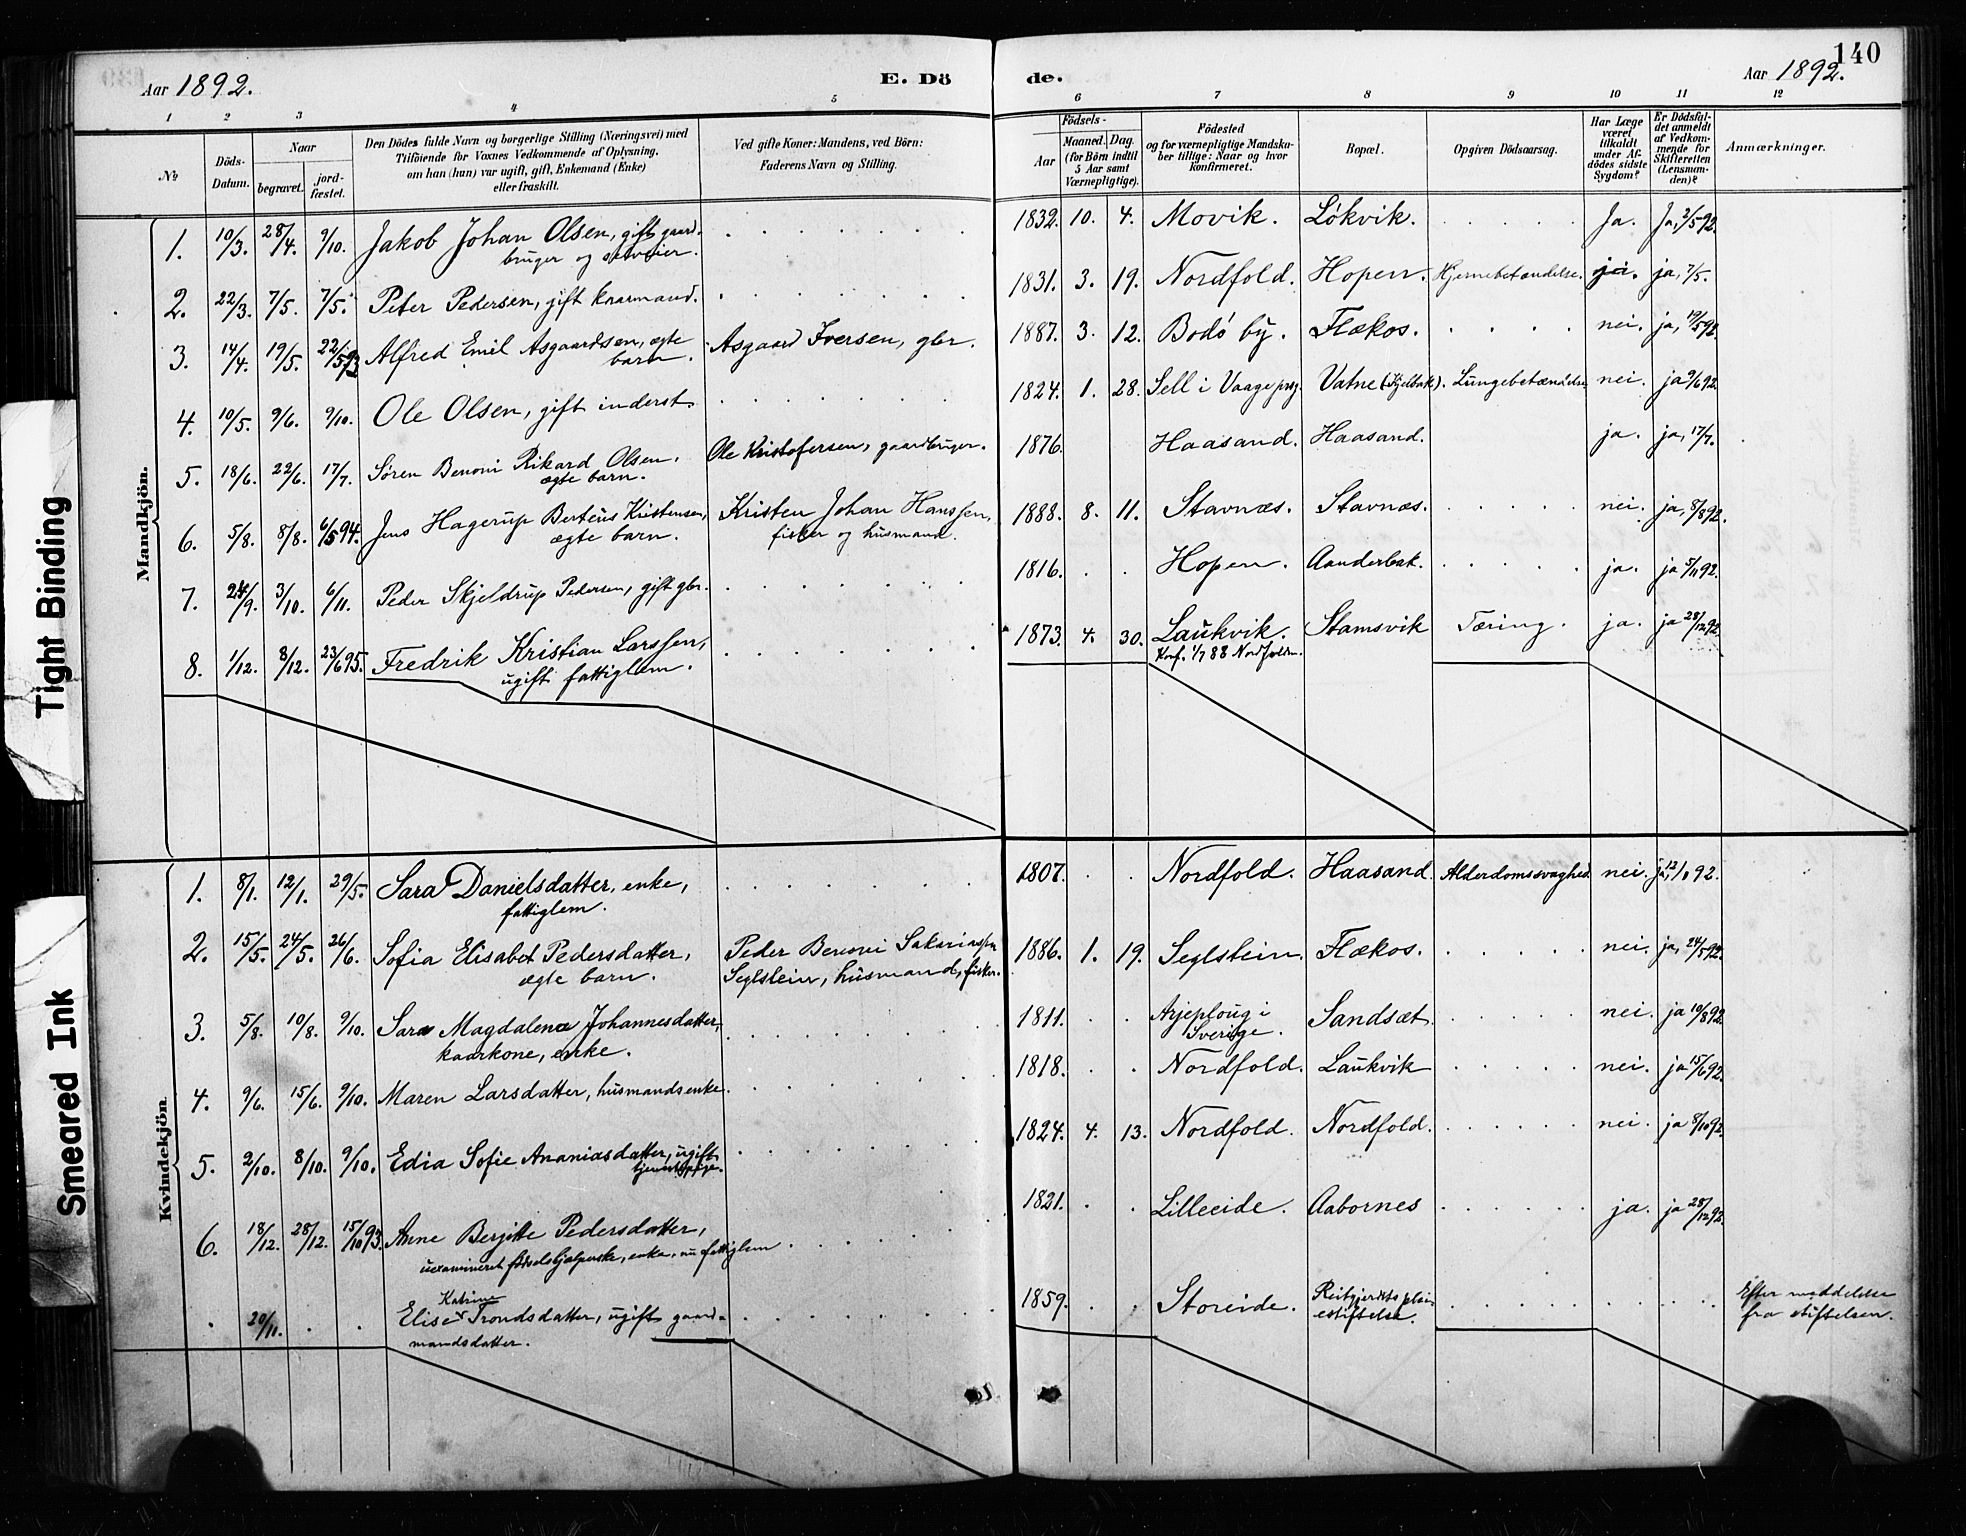 140
Aar 1892. E. Dö de. Aar 1892.
1 2 3 4 5 6 7 8 9 10 11 12
No
Döds-Datum.
Naar
begravet. jordfæstet.
Den Dödes fulde Navn og borgerlige Stilling (Næringsvei) med
Tilföiende for Voxnes Vedkommende af Oplysning,
om han (hun) var ugift, gift, Enkemand (Enke)
eller fraskilt.
Ved gifte Koner: Mandens, ved Börn:
Faderens Navn og Stilling.
Födsels-
Aar Maaned. Dag.
(for Börn indtil
5 Aar samt
Værnepligtige).
Födested
og for værnepligtige Mandska-
ber tillige: Naar og hvor
konfirmeret.
Bopæl.
Opgiven Dödsaarsag.
Har Læge
været
tilkaldt
under Af-
dödes sidste
Sygdom?
Er Dödsfal-
det anmeldt
af Vedkom-
mende for
Skifteretten
(Lensman-
den)?
Anmærkninger.
Mandkjön.
1. 10/3. 28/4. 9/10. Jakob Johan Olsen, gift gaard- 1832. 10. 4. Movik. Lökvik. Ja. Ja, 2/5 92.
bruger og selveier.
2. 22/3. 7/5. 7/5. Peter Pedersen, gift kaarmand. 1831. 3. 19. Nordfold. Hopen. Hjernebetændelse. ja, 7/5.
3. 14/4. 19/5. 22/5 93 Alfred Emil Asgaardsen, ægte Asgaard Iversen, gbr. 1887. 3. 12. Bodö by. Flækos. nei. ja, 19/5 92.
barn.
4. 10/5. 9/6. 9/10. Ole Olsen, gift inderst. 1824. 1. 28. Sell i Vaage prg. Vatne (Fjelbak). Lungebetændelse nei. ja 9/6 92.
5. 18/6. 22/6. 17/7. Sören Benoni Rikard Olsen. Ole Kristofersen, gaardbruger. 1876. Haasand. Haasand. ja. ja, 17/7.
ægte barn.
6. 5/8. 8/8. 6/5 94. Jens Hagerup Berteus Kristensen, Kristen Johan Hanssen, 1888. 8. 11. Stavnæs. Stavnæs. nei. ja, 8/8 92.
ægte barn. fisker og husmand.
7. 24/9. 3/10. 6/11. Peder Skjeldrup Pedersen, gift gbr. 1816. Hopen. Aanderbak. ja. ja 5/11 92.
8. 1/12. 8/12. 23/6 95. Fredrik Kristian Larssen, 1873. 4. 30. Laukvik. Stamsvik Tæring. ja. ja 28/12 92.
ugift fattiglem. Konf. 1/7 88 Nordfolden.
Kvindekjön
1. 8/1. 12/1. 29/5. Sara Danielsdatter, enke, 1807. Nordfold. Haasand. Alderdomssvaghed nei. ja, 12/1 92.
fattiglem.
2. 15/5. 24/5. 26/6. Sofia Elisabet Pedersdatter, Peder Benoni Sakariassen 1886. 1. 19. Seglstein. Flækos. nei. ja, 24/5 92.
ægte barn. Seglstein, husmand, fisker.
3. 5/8. 10/8. 9/10. Sara Magdalena Johannesdatter, 1811. Arjeploug i Sandsæt. nei. ja 10/8 92.
kaarkone, enke. Sverige.
4. 9/6. 15/6. 9/10. Maren Larsdatter, husmandsenke. 1818. Nordfold. Laukvik nei. ja 15/6 92.
5. 2/10. 8/10. 9/10. Edia Sofie Ananiasdatter, ugift 1824. 4. 13. Nordfold. Nordfold. nei. ja 8/10 92.
tjenestepige.
6. 18/12. 28/12. 15/10 93. Anne Bergitte Pedersdatter, 1821. Lilleeide. Aabornes ja. ja 28/12 92.
uexamineret födselshjælperske, enke, nu fattiglem
Katrine
20/11. Elise Trondsdatter, ugift gaard- 1859. Storeide. Reitgjerdets plei- Efter meddelelse
mandsdatter. estiftelse. fra stiftelsen.
Tight Binding
Smeared Ink